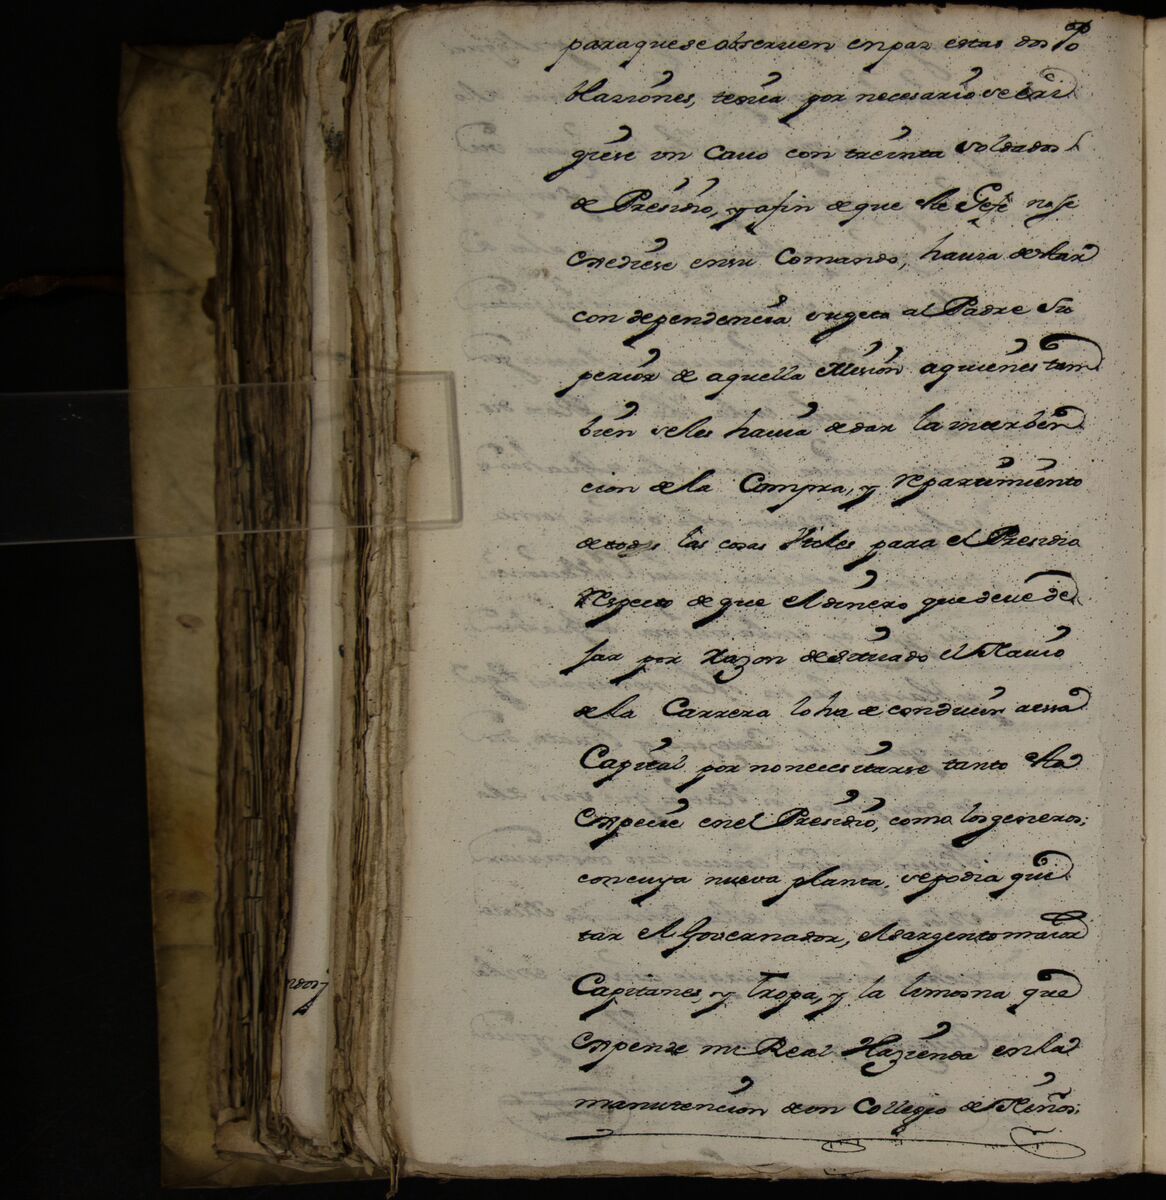 para que se observen en paz estas dos Po
blaziones, tenia por necesario se eri
giese un Cavo con treinta soldados
de Presidio, y afin de que este Gefe no se
expediese en su Comando, havia de estar
con dependencia sugeta al Padre Su
perior de aquella Mision aquienes tam
bien se les havia de dar la interben
cion de la Compra, y Repartimiento
de todas las cosas utiles para el Presidio
Respecto de que el dinero que deve de
jar por Razon de situado el Navio
de la Carrera lo ha de conducir a essa
Capital por no necesitarse tanto esta
especie en el Presidio, como los generos;
con cuya nueva planta, se podia qui
tar el Governador, el Sargento maior
Capitanes, y tropa, y la limosna que
expende mi Real Hazienda en la
manutencion de un Collegio de Niños;